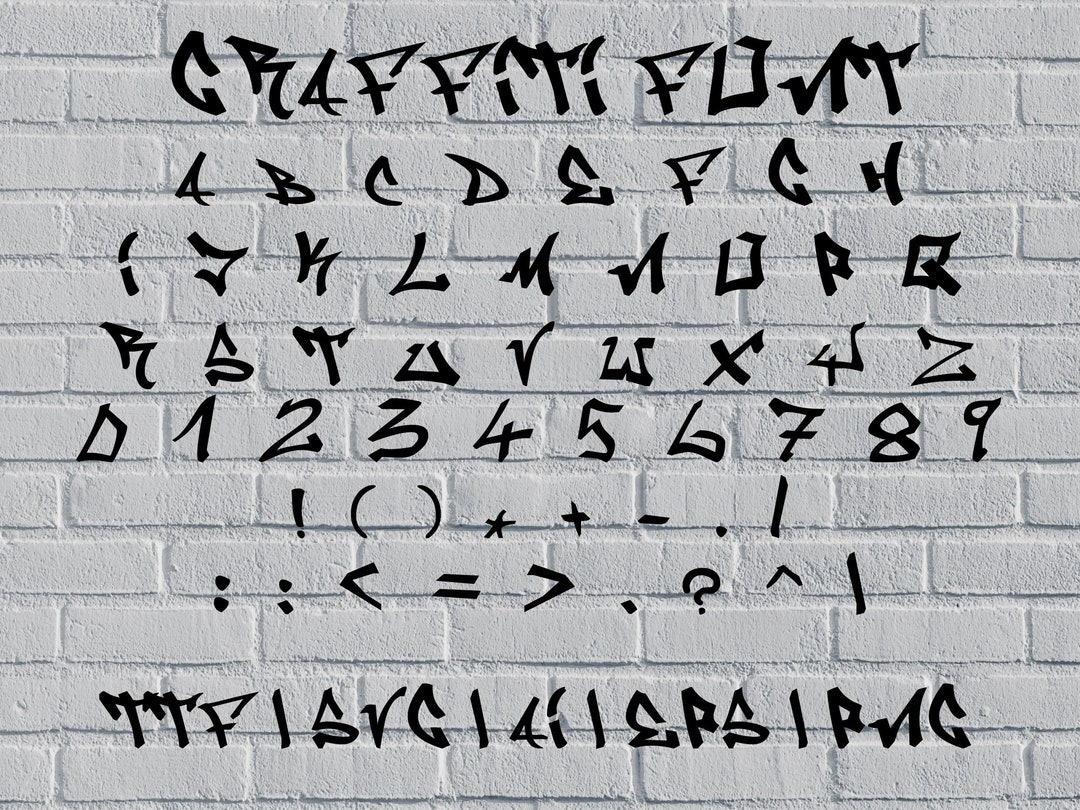 GRAFFITI FONT
A B C D E F G H
I J K L M N O P Q
R S T U V W X Y Z
0 1 2 3 4 5 6 7 8 9
! ( ) * + - . /
: : < = > . ? ^ \
TTF | SVG | AI | EPS | PNG